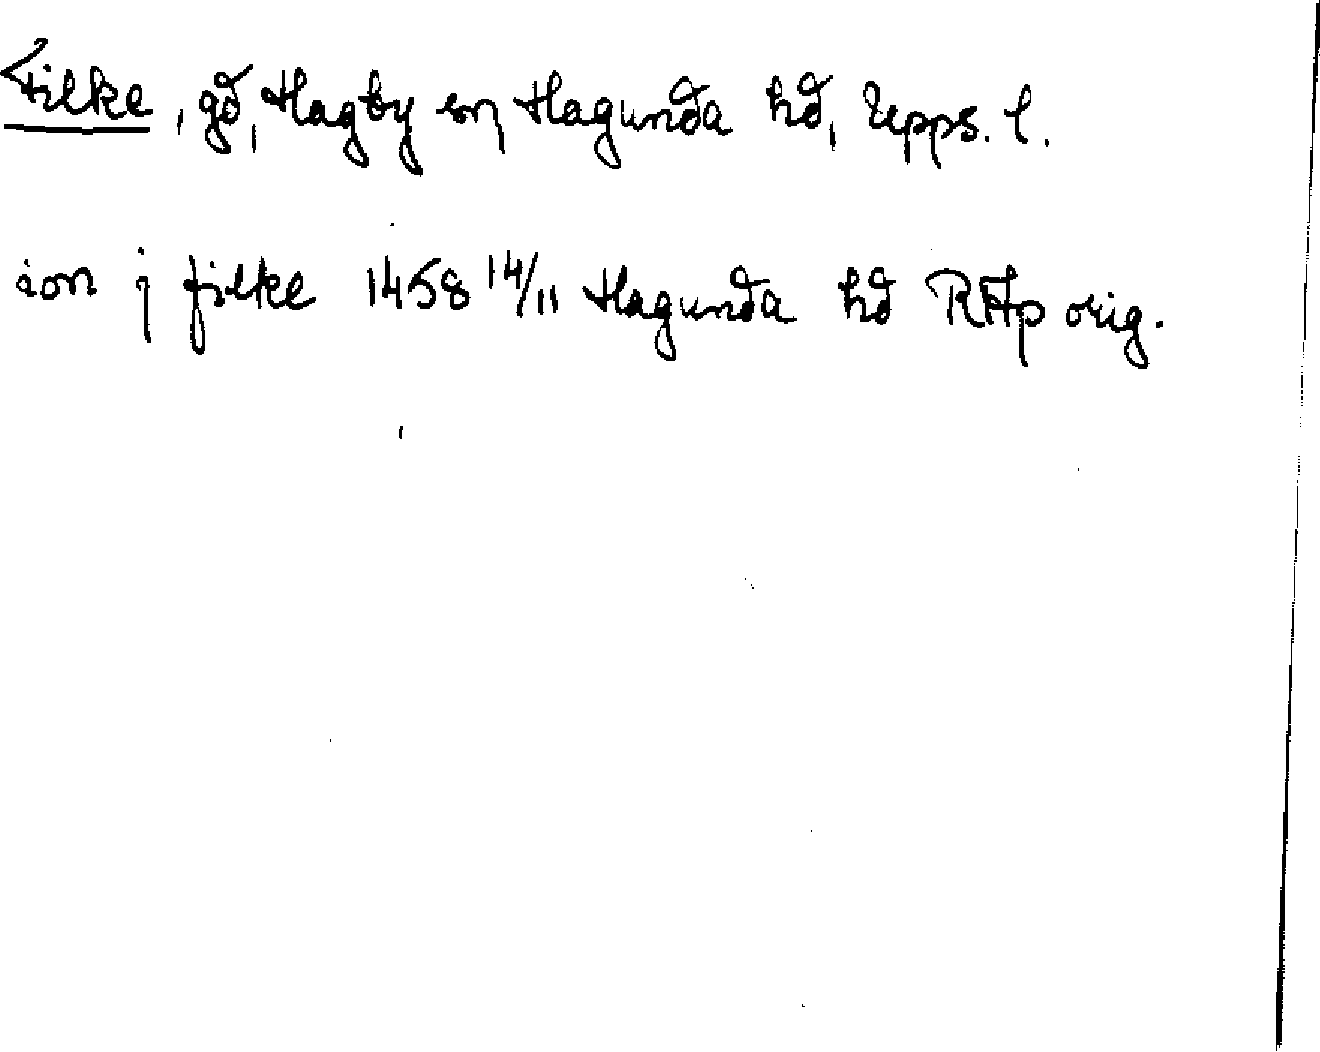 Filke, gd, Hagby sn, Hagunda hd, Upps. l.
ion j filke 1458 14/11 Hagunda hd RAp orig.